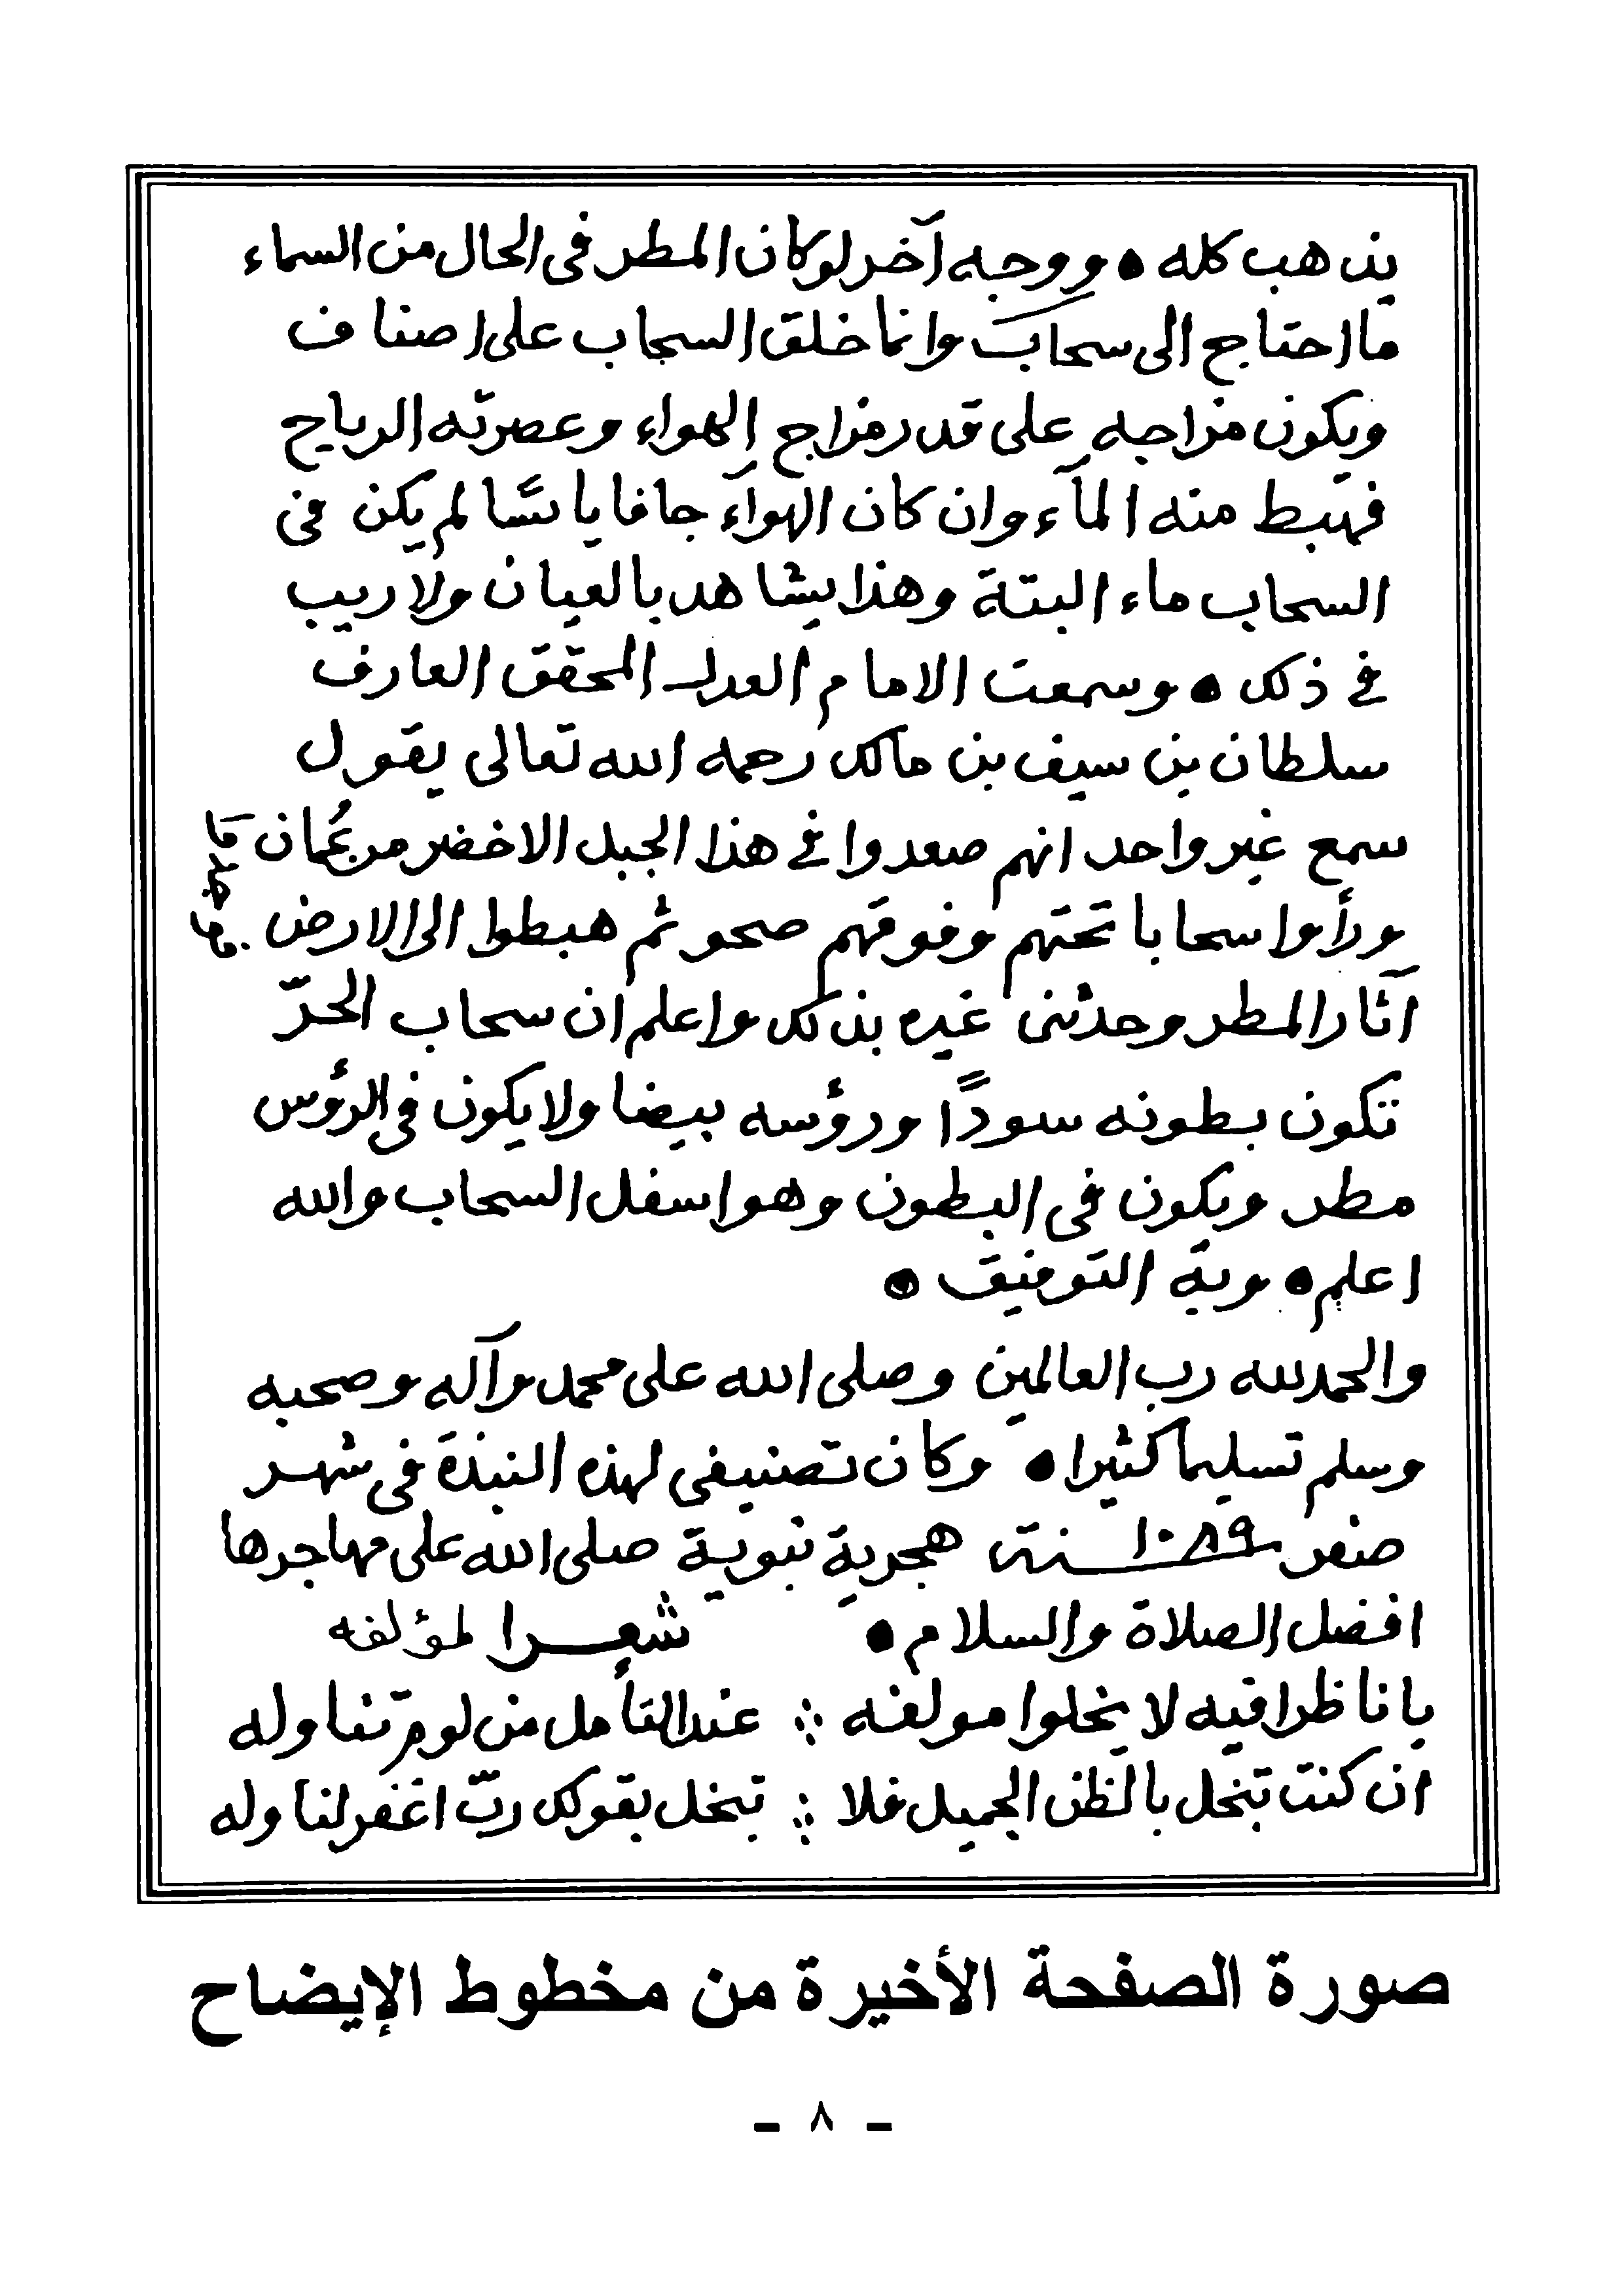 يذهب كله • ووجه آخر لو كان المطر فى الحال من السماء
ما احتاج الى سحاب وانما خلق السحاب على اصناف
ويكون مزاجه على قدر مزاج الهواء وعصرته الرياح
فهبط منه المآء وان كان الهوآء جافا يابسًا لم يكن فى
السحاب ماء البتة وهذا يشاهد بالعيان ولا ريب
في ذلك • وسمعت الامام العدل المحقق العارف
سلطان بن سيف بن مالك رحمه الله تعالى يقول
سمع غير واحد انهم صعدوا في هذا الجبل الاخضر من عُمان
ورأوا سحابا تحتهم وفوقهم صحو ثم هبطوا الى الارض
آثار المطر وحدثنى غيره بذلك واعلم ان سحاب الحرّ
تكون بطونه سودًا ورؤسه بيضا ولا يكون فى الرؤس
مطر ويكون فى البطون وهو اسفل السحاب والله
اعلم • وبه التوفيق •
والحمد لله رب العالمين وصلى الله على محمد وآله وصحبه
وسلم تسليما كثيرا • وكان تصنيفى لهذه النبذة فى شهر
صفر سنة ١٠٨٩ هجرية نبوية صلى الله على مهاجرها
افضل الصلاة والسلام • شعرا لمؤلفه
يا ناظرا فيه لا يخلوا مولفه ∴ عند التأمل من لوم تناوله
ان كنت تبخل بالظن الجميل فلا ∴ تبخل بقولك ربّ اغفر لنا وله
صورة الصفحة الأخيرة من مخطوط الإيضاح
- ٨ -